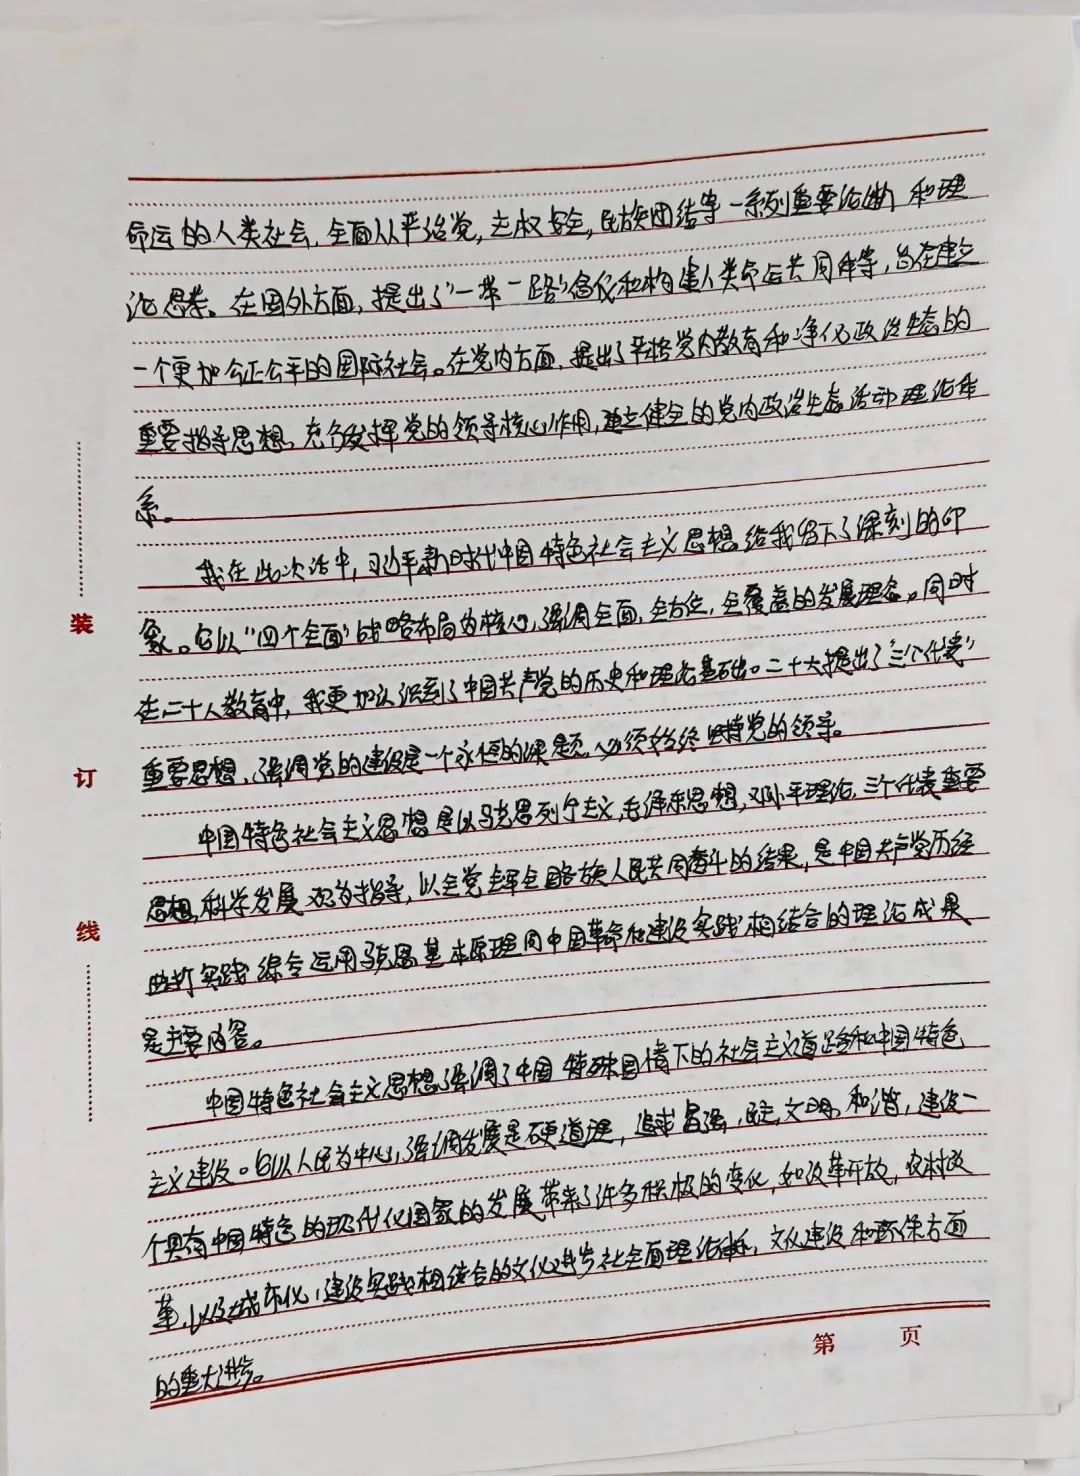 命运的人类社会，全面从严治党，主权安全，民族团结等一系列重要论断和理
论思想。在国外方面，提出了“一带一路”倡仪和构建人类命运共同体等，旨在建立
一个更加公正公平的国际社会。在党内方面，提出了严格党内教育和净化政治生态的
重要指导思想。充分发挥党的领导核心作用，建立健全的党内政治生态活动理论体
系。
我在此次活中，习近平新时代中国特色社会主义思想给我留下了深刻的印
象。它以“四个全面”战略布局为核心，强调全面，全方位，全覆盖的发展理念。同时
在二十大教育中，我更加认识到了中国共产党的历史和理论基础。二十大提出了“三个代表”
重要思想，强调党的建设是一个永恒的课题，必须始终坚持党的领导。
中国特色社会主义思想是以马克思列宁主义，毛泽东思想，邓小平理论，三个代表重要
思想，科学发展观为指导，以全党全军全国各族人民共同奋斗的结果，是中国共产党历经
曲折实践综合运用马克思基本原理同中国革命和建设实践相结合的理论成果
是主要内容。
中国特色社会主义思想强调了中国特殊国情下的社会主义道路和中国特色
主义建设。它以人民为中心，强调发展是硬道理，追求富强，民主，文明，和谐，建设一
个具有中国特色的现代化国家的发展带来了许多积极的变化，如改革开放，农村改
革，以及城市化，建设实践相结合的文化进步社会面理论体系，文化建设和环保方面
的重大进步。
装
订
线
第 页